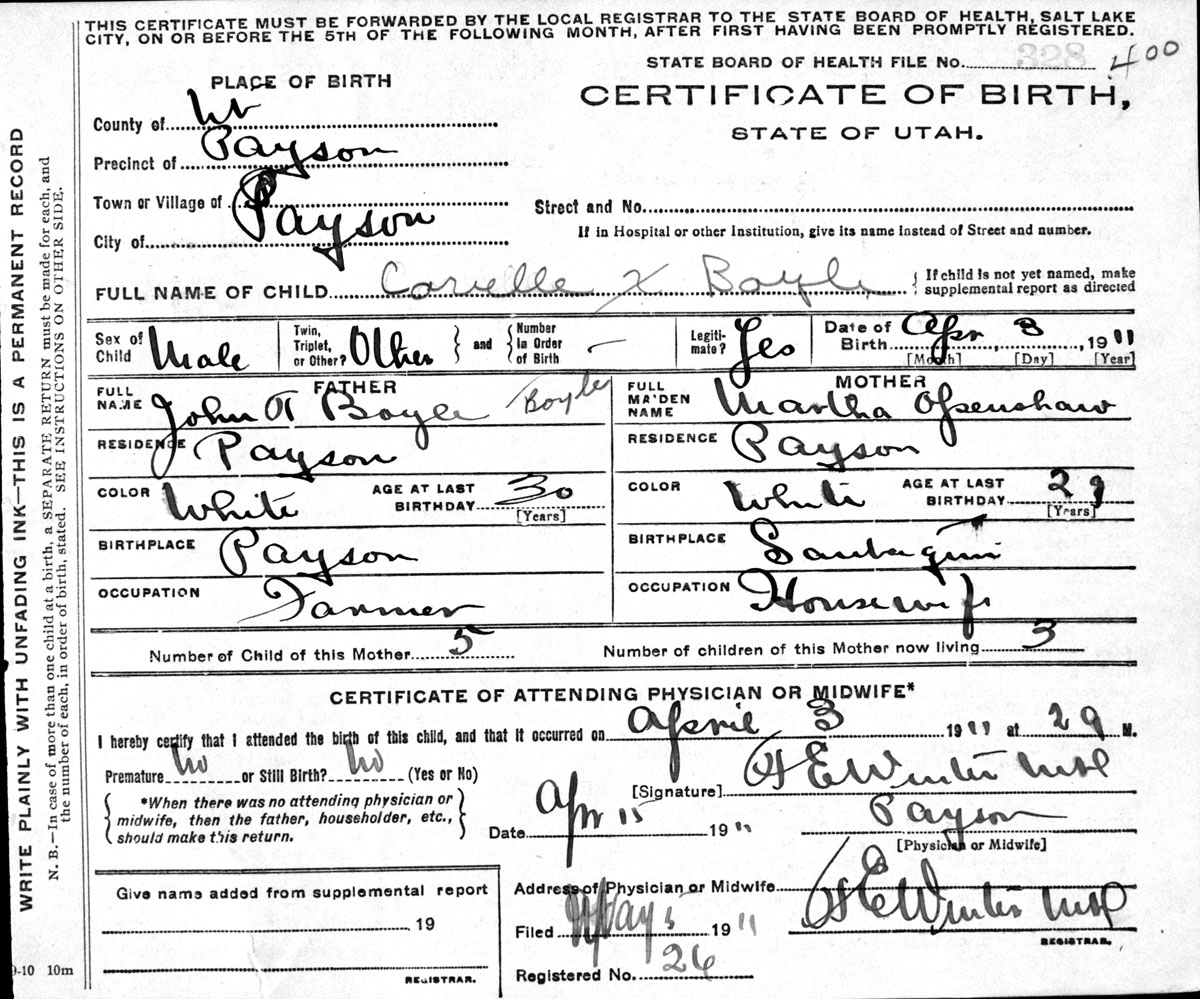 THIS CERTIFICATE MUST BE FORWARDED BY THE LOCAL REGISTRAR TO THE STATE BOARD OF HEALTH, SALT LAKE
CITY, ON OR BEFORE THE 5TH OF THE FOLLOWING MONTH, AFTER FIRST HAVING BEEN PROMPTLY REGISTERED.
STATE BOARD OF HEALTH FILE No. 328 400
PLACE OF BIRTH
CERTIFICATE OF BIRTH,
STATE OF UTAH.
County of
Precinct of Payson
Town or Village of
City of Payson
Street and No.
If in Hospital or other Institution, give its name instead of Street and number.
FULL NAME OF CHILD Carielle X Boyle { If child is not yet named, make
supplemental report as directed
Sex of Child Male
Twin, Triplet, or Other? Other } and { Number in Order of Birth –
Legiti-mate? Yes
Date of Birth Apr 3, 1911
[Month] [Day] [Year]
FATHER
FULL NAME John A Boyle Boyle
RESIDENCE Payson
COLOR White AGE AT LAST BIRTHDAY 30
[Years]
BIRTHPLACE Payson
OCCUPATION Farmer
MOTHER
FULL MAIDEN NAME Martha Openshaw
RESIDENCE Payson
COLOR White AGE AT LAST BIRTHDAY 29
[Years]
BIRTHPLACE Santaquin
OCCUPATION Housewife
Number of Child of this Mother 5 Number of children of this Mother now living 3
CERTIFICATE OF ATTENDING PHYSICIAN OR MIDWIFE*
I hereby certify that I attended the birth of this child, and that it occurred on April 3 1911 at 29 M.
Premature No or Still Birth? No (Yes or No)
{ *When there was no attending physician or
midwife, then the father, householder, etc.,
should make this return. }
[Signature] H E Winter
Date Apr 15 1911
Payson
[Physician or Midwife]
Give name added from supplemental report
19
REGISTRAR.
Address of Physician or Midwife
Filed May 5 1911
H E Winter
REGISTRAR.
Registered No. 26
9-10 10m
WRITE PLAINLY WITH UNFADING INK—THIS IS A PERMANENT RECORD
N. B.—In case of more than one child at a birth, a SEPARATE RETURN must be made for each, and
the number of each, in order of birth, stated. SEE INSTRUCTIONS ON OTHER SIDE.